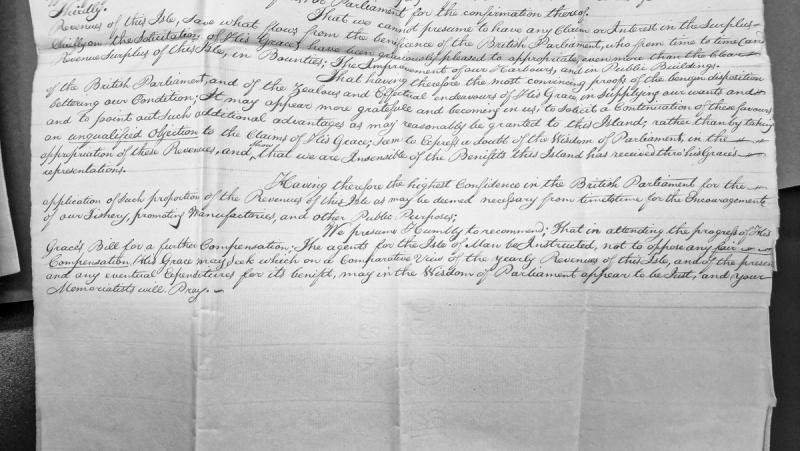 Parliament for the confirmation thereof.
Thirdly. That we cannot presume to have any Claim or Interest in the Surplus
Revenues of this Isle, save what flows from the beneficence of the British Parliament, who from time to time (and
Chiefly on the Solicitation of His Grace) have been graciously pleased to appropriate, even more than the Clear
Revenue Surplus of this Isle, in Bounties; The Improvement of our Harbours, and in Public Buildings.
That having therefore the most convincing proofs of the benign disposition
of the British Parliament, and of the Zealous and Effectual endeavours of His Grace, in supplying our wants and
bettering our Condition; It may appear more grateful and becoming in us, to solicit a Continuation of these favours
and to point out such additional advantages as may reasonably be granted to this Island; rather than by taking
an unqualified objection to the Claims of His Grace; seem to Express a doubt of the Wisdom of Parliament, in the
appropriation of these Revenues, and, shew that we are Insensible of the Benefits this Island has received thro' his Grace's
representations.
Having therefore the highest Confidence in the British Parliament for the
application of such proportion of the Revenues of this Isle as may be deemed necessary from time to time for the Encouragement
of our Fishery, promoting Manufactories, and other Public Purposes;
We presume Humbly to recommend; That in attending the progress of His
Grace's Bill for a further Compensation; The agents for the Isle of Man be Instructed, not to oppose any fair
Compensation His Grace may seek which on a Comparative View of the yearly Revenues of this Isle, and of the present
and any eventual Expenditures for its benefit, may in the Wisdom of Parliament appear to be Just, and your
Memorialists will Pray.